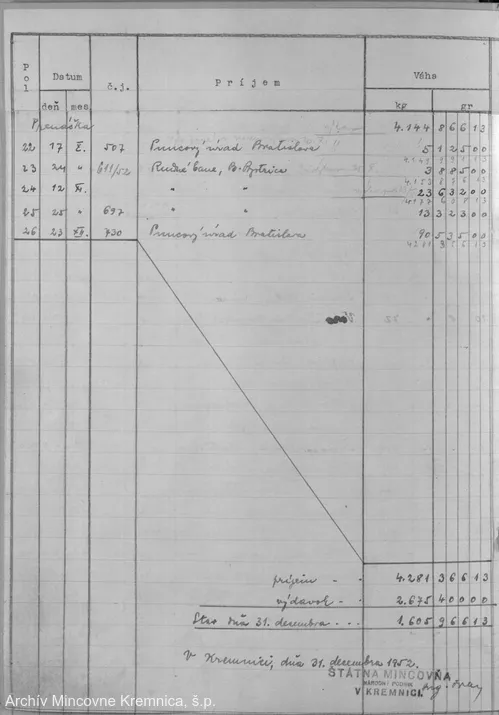 Pol Datum č.j. Príjem Váha
deň mes. kg gr
Prenáška 4.144 86613
22 17 X. 507 Puncový úrad Bratislava 5 12500
23 24 " 611/52 Rudné bane, B. Bystrica 3 88500
24 12 XI. " " 23 63200
25 25 " 697 " " 13 32300
26 23 XII. 730 Puncový úrad Bratislava 90 53500
príjem - - 4.281 36613
výdavok - - 2.675 40000
Stav dňa 31. decembra - - - 1.605 96613
V Kremnici, dňa 31. decembra 1952.
ŠTÁTNA MINCOVŇA
NÁRODNÝ PODNIK
V KREMNICI
Archív Mincovne Kremnica, š.p.